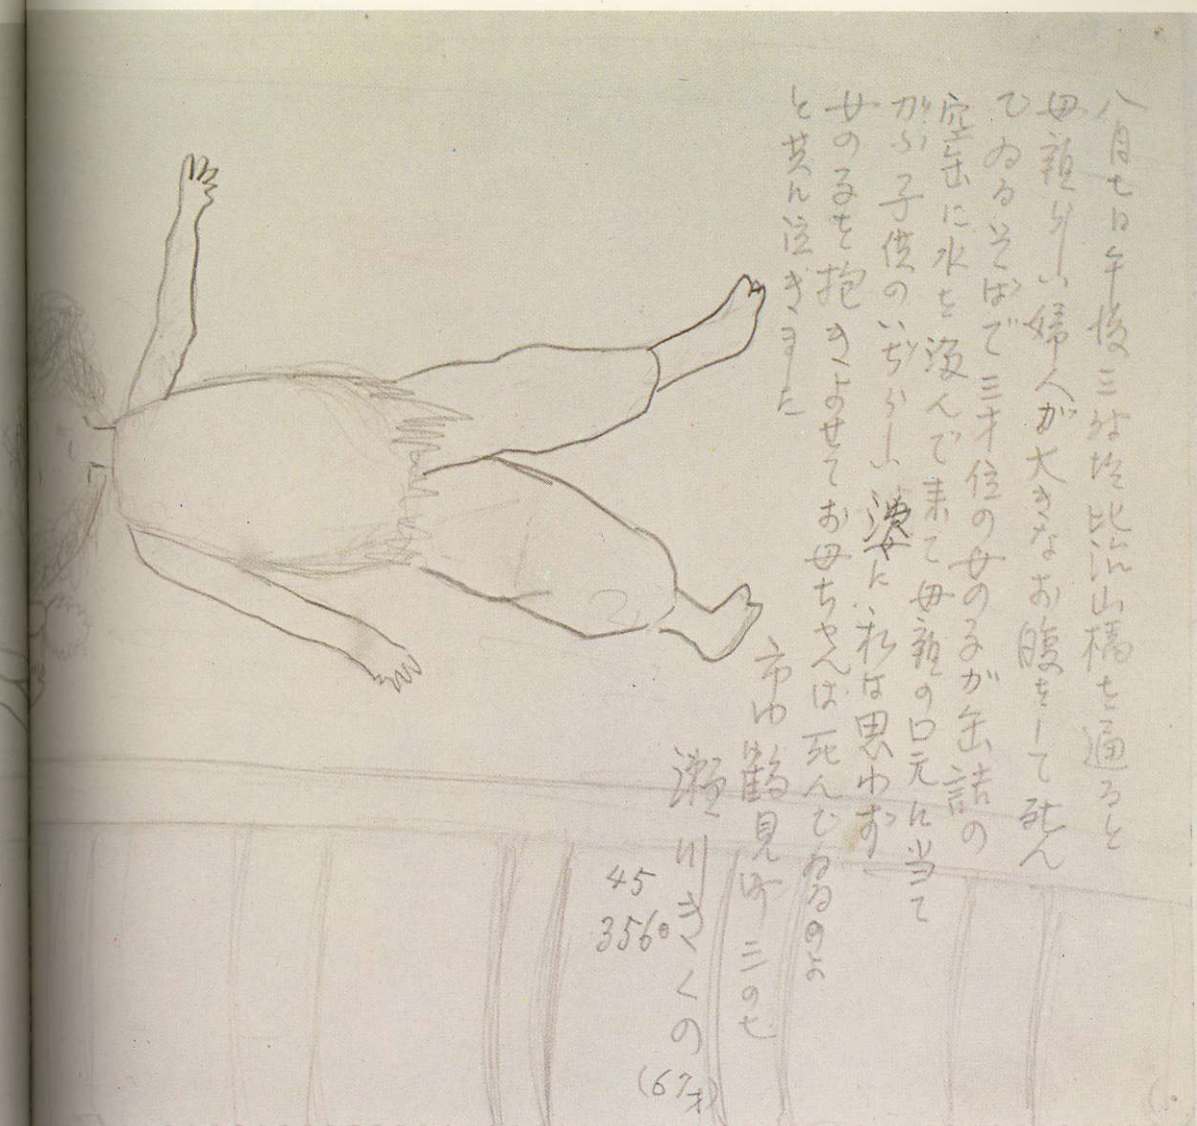 八月七日午後三時頃比治山橋を通ると
母親らしい婦人が大きなお腹をして死ん
でゐるそばで三才位の女の子が缶詰の
空缶に水を汲んで来て母親の口元に当て
がふ子供のいぢらしい姿に、私は思わず
女の子を抱きよせてお母ちゃんは死んでゐるのよ
と共に泣きました
市内鶴見町三の七
瀬川きくの
(67才)
45
3560